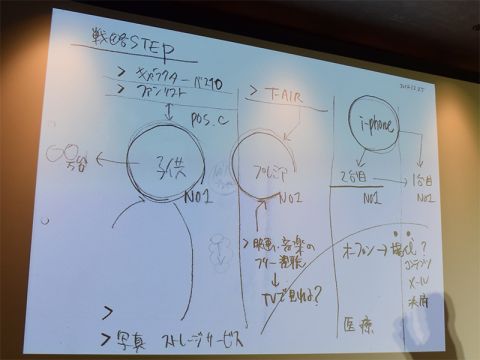 戦略STEP
2012.12.25
> キャラクター
> ファンリスト
POS.C
子供
NO1
> T-AIR
プレミア
NO2
i-phone
2台目
NO1
→ 1台目
NO1
> 映画・音楽の
フリー視聴
↓
TVで見れる?
オープン →
?
コンテンツ
メール
医療
>
> 写真 ストレージサービス